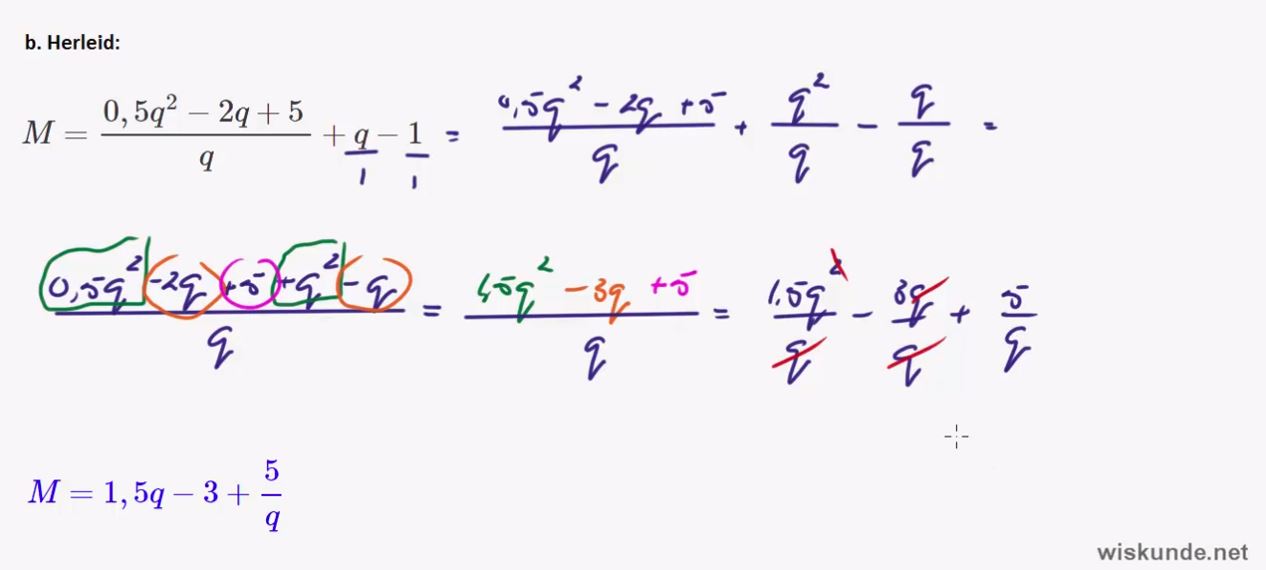 b. Herleid:
M = (0,5q² − 2q + 5)/q + q/1 − 1/1 = (0,5q² − 2q + 5)/q + q²/q − q/q =
(0,5q² − 2q + 5 + q² − q)/q = (1,5q² − 3q + 5)/q = 1.5q²/q − 3q/q + 5/q
M = 1,5q − 3 + 5/q
wiskunde.net